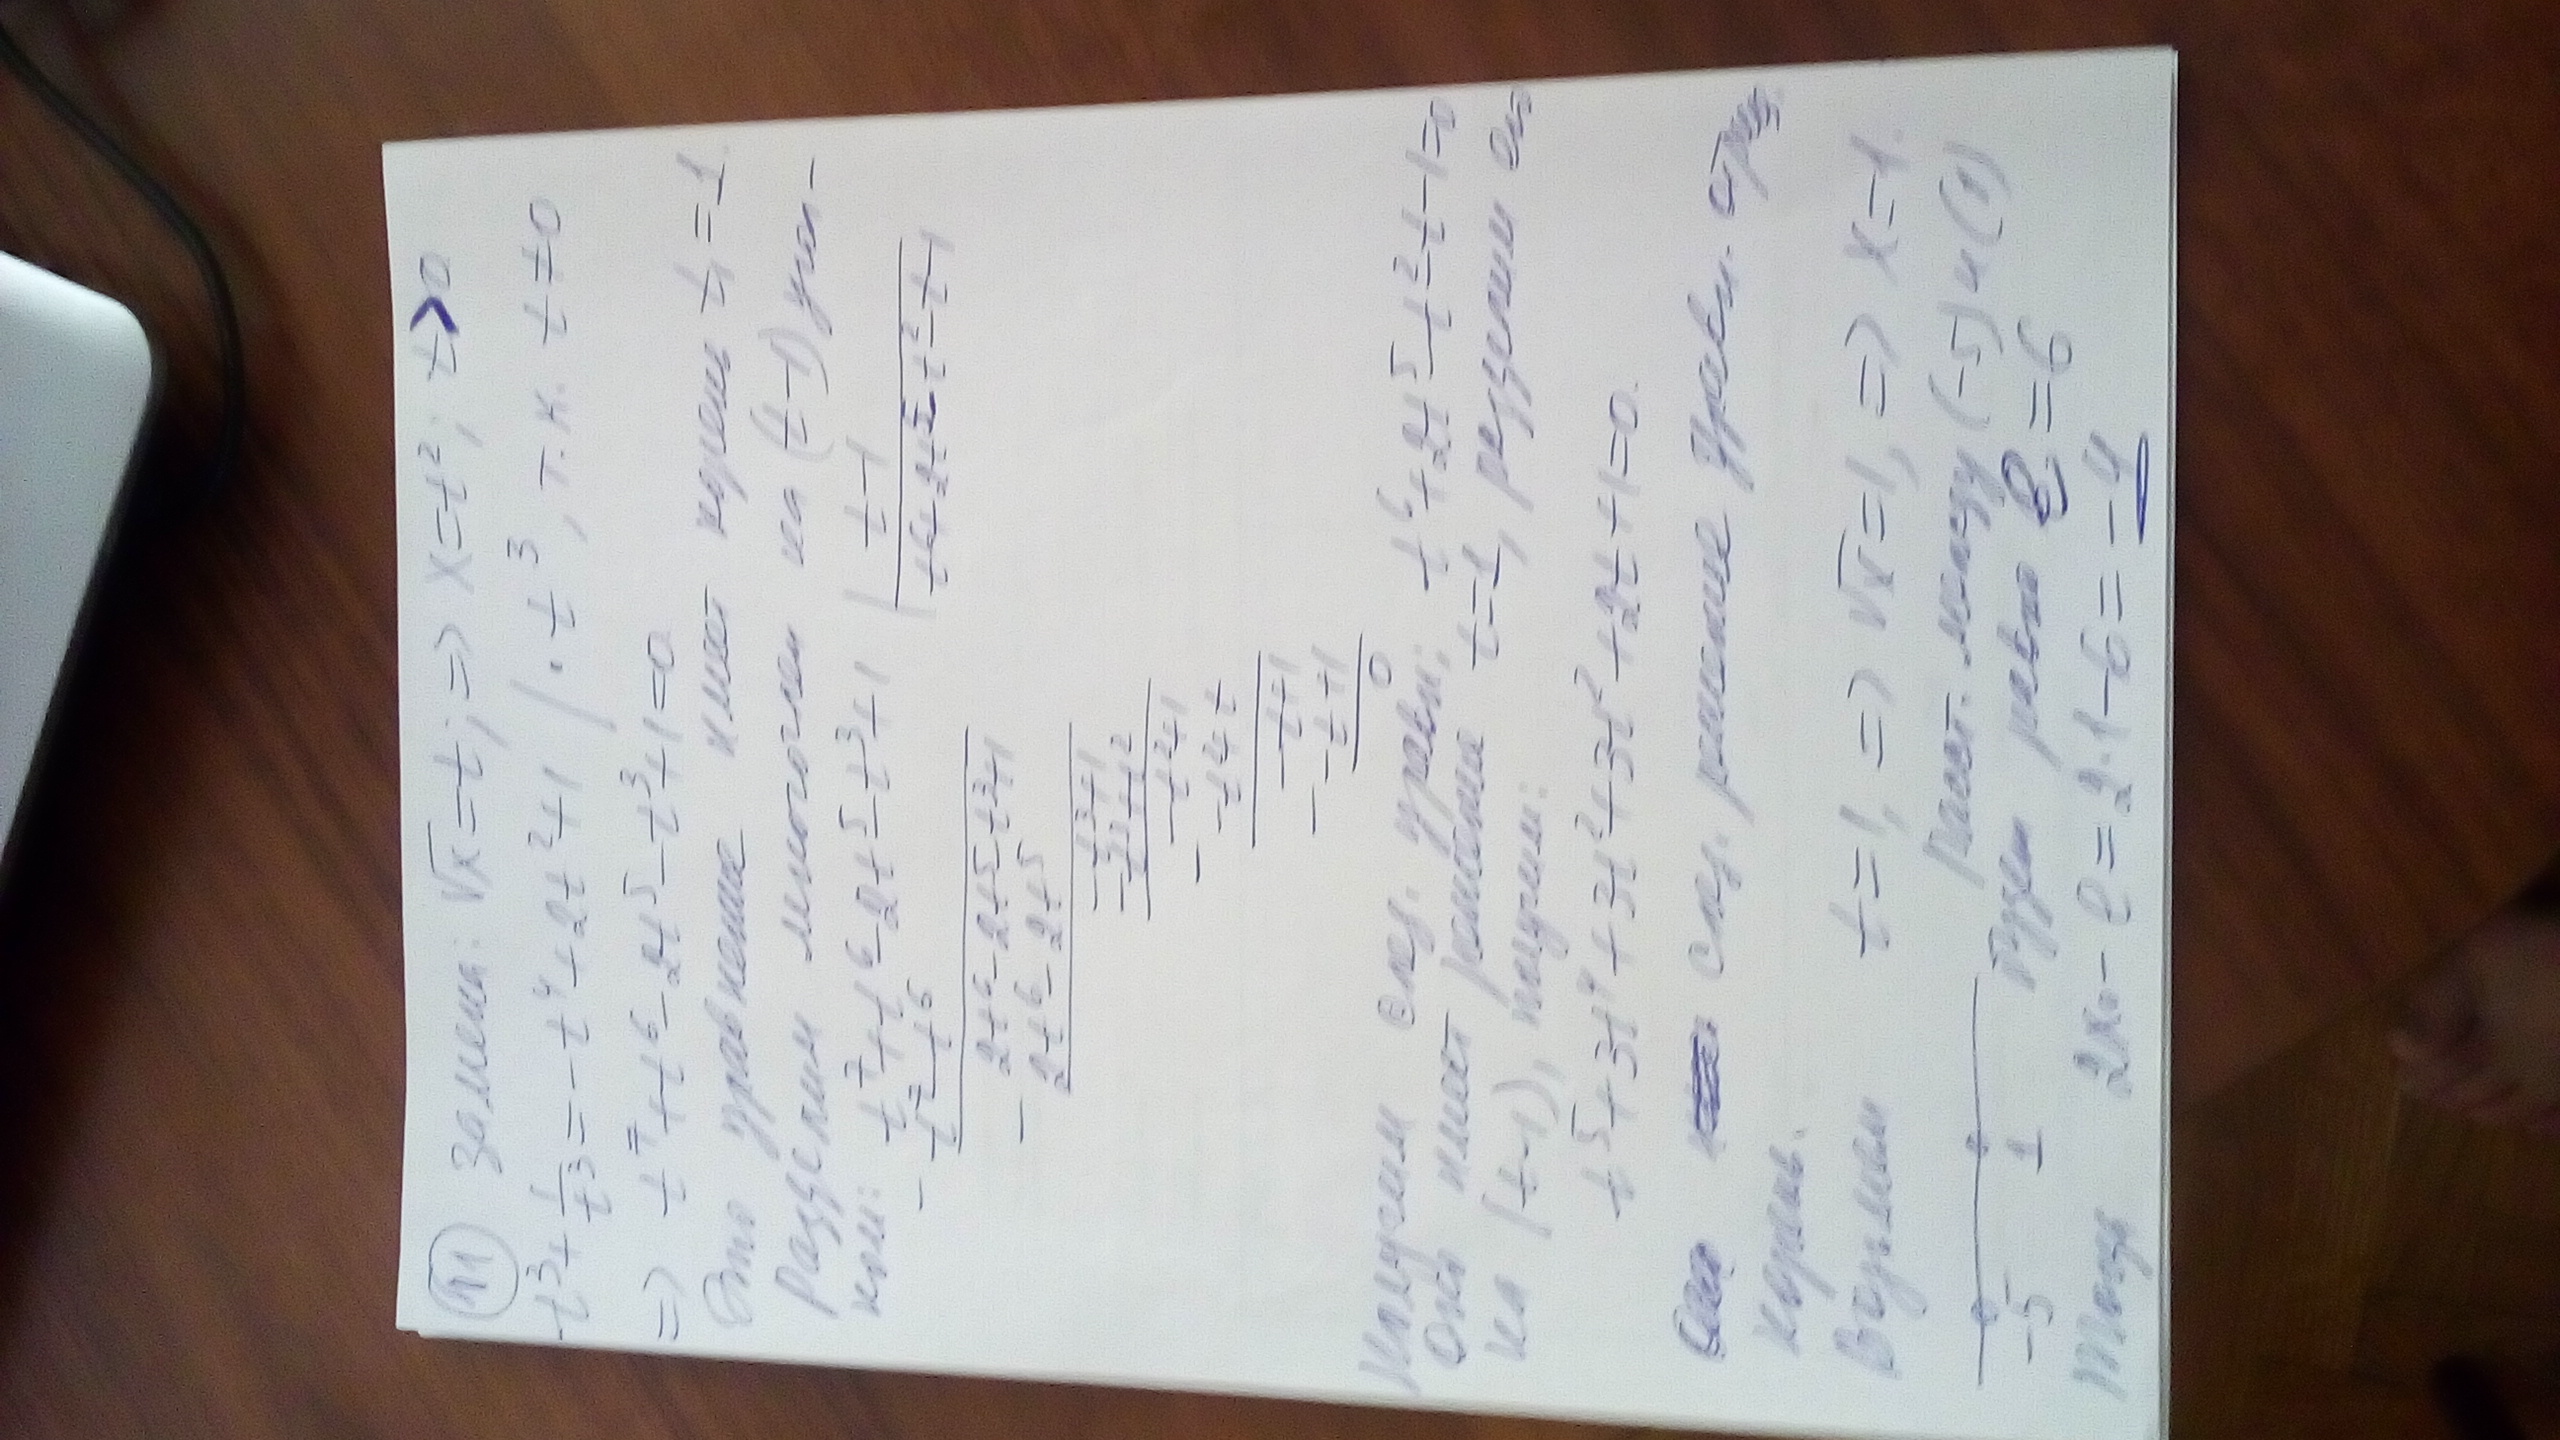 11 замена: √x = t; => x = t²; t>0
t³ + 1/t³ = -t⁴ + 2t² + 1 | · t³, т.к. t≠0
=> t⁷ + t⁶ - 2t⁵ - t³ + 1 = 0
Это уравнение имеет корень t₁ = 1.
Разделим многочлен на (t-1) угл-
ком: t⁷ + t⁶ - 2t⁵ - t³ + 1 | t-1
- t⁷ - t⁶
2t⁶ - 2t⁵ - t³ + 1
- 2t⁶ - 2t⁵
-t³ + 1
-t³ + t²
-t² + 1
- -t² + t
-t + 1
- -t + 1
0
Получим след. уравн: t⁶ + 2t⁵ - t² - t - 1 = 0
Оно имеет решение t = 1, разделим его
на (t-1), получим:
t⁵ + 3t⁴ + 3t³ + 3t² + 2t + 1 = 0.
след. решение уравн. отриц.
корнив.
Возьмём t = 1, => √x = 1, => x = 1.
Раст. между (-5) и (1)
-5 1 будет равно ρ = 6
Тогда 2x₀ - ρ = 2·1 - 6 = -4